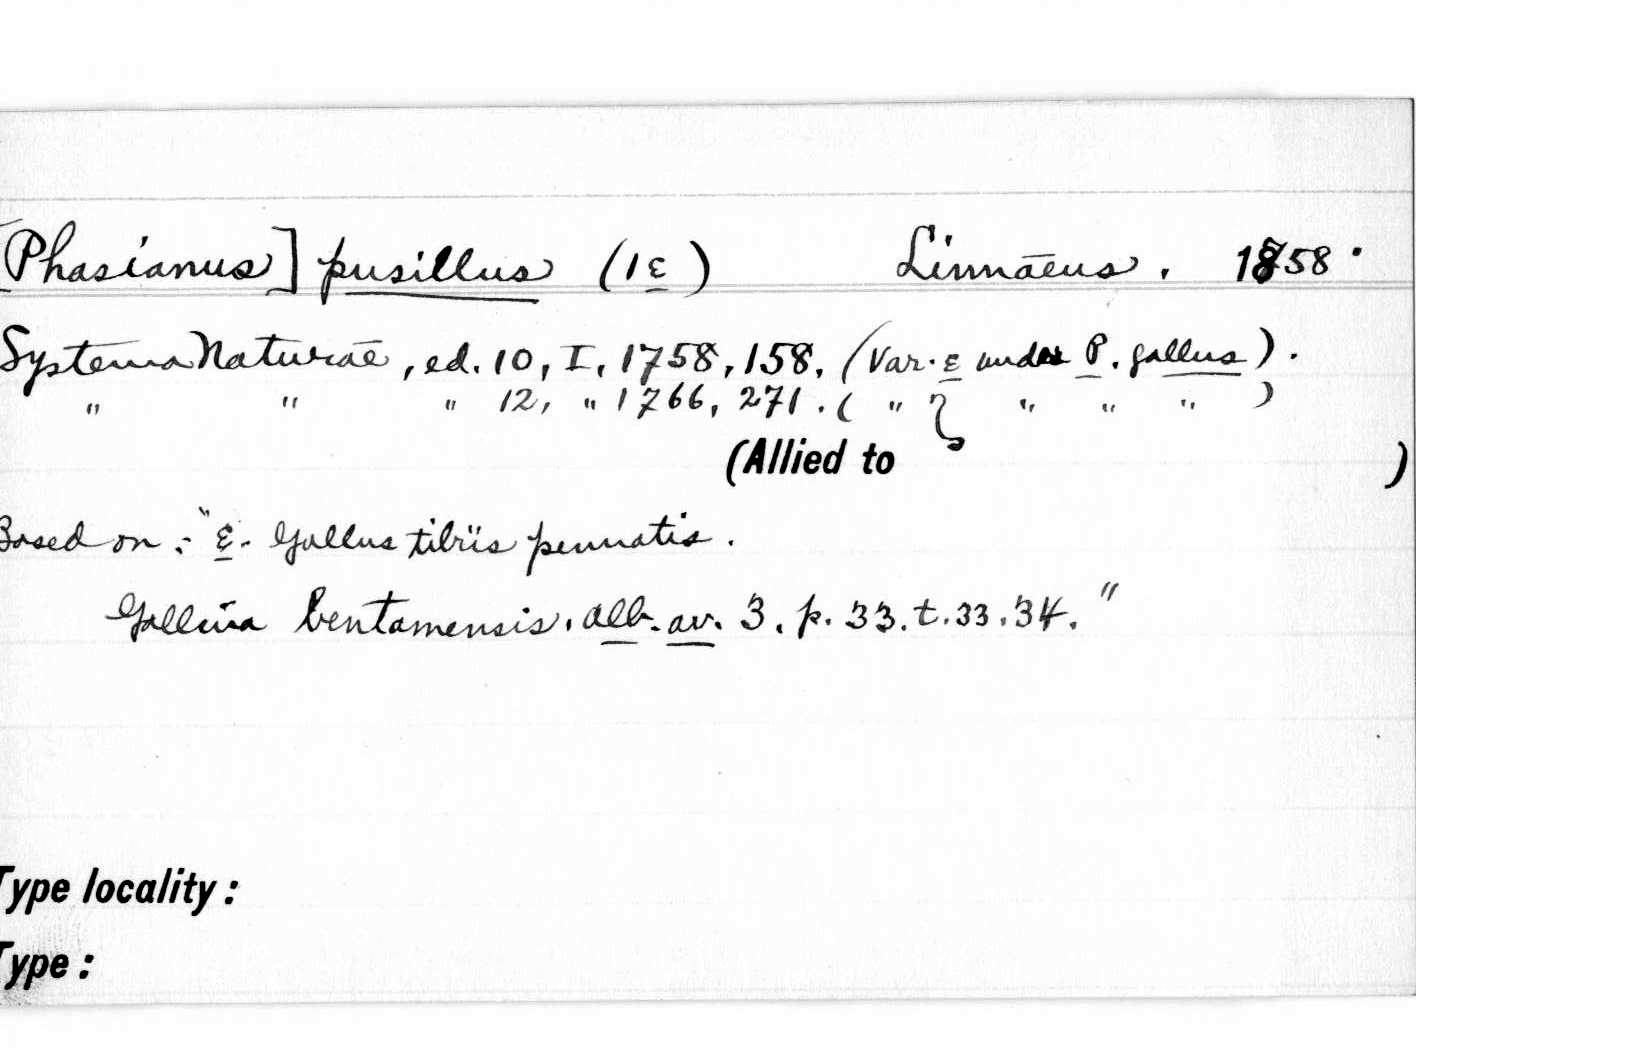 [Phasianus] pusillus (1ε) Linnaeus. 1758.
Systema Naturae, ed. 10, I, 1758, 158. (Var. ε under P. gallus).
" " " 12, " 1766, 271. ( " ζ " " " )
(Allied to )
Based on :- "ε. Gallus tibiis pennatis.
Gallina bentamensis. alb. av. 3. p. 33. t. 33. 34."
Type locality:
Type: